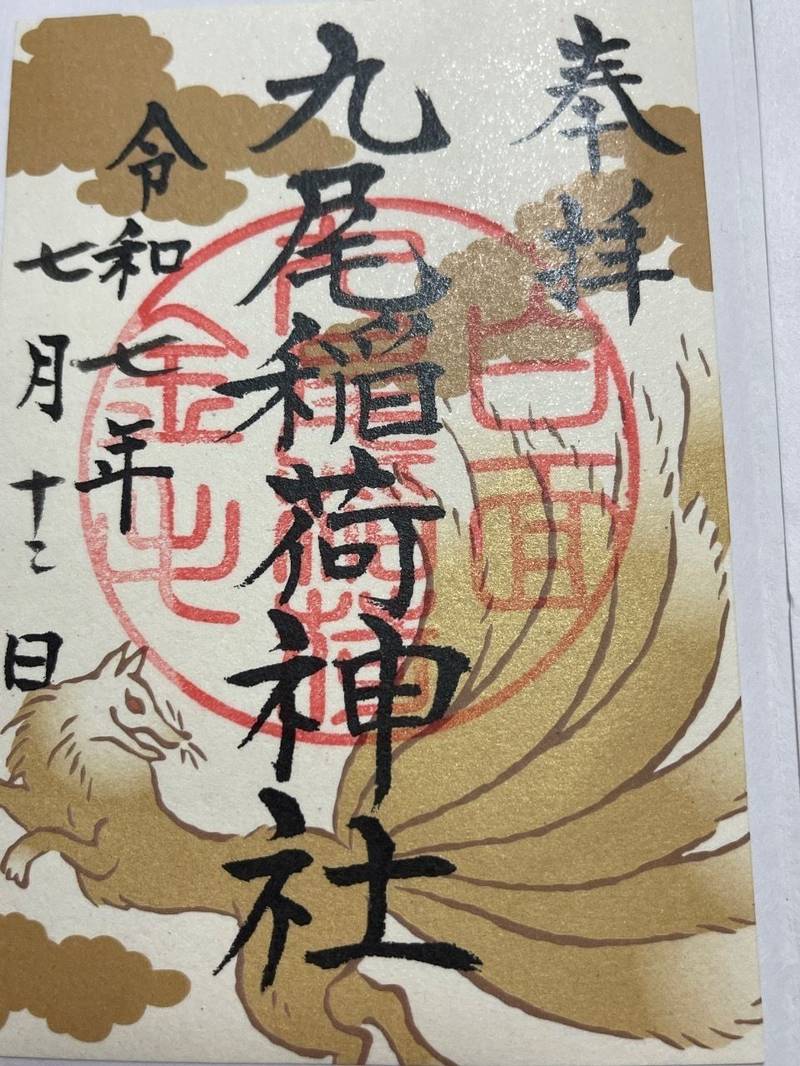 奉拝
九尾稲荷神社
令和七年
七月十二日
白面
金毛